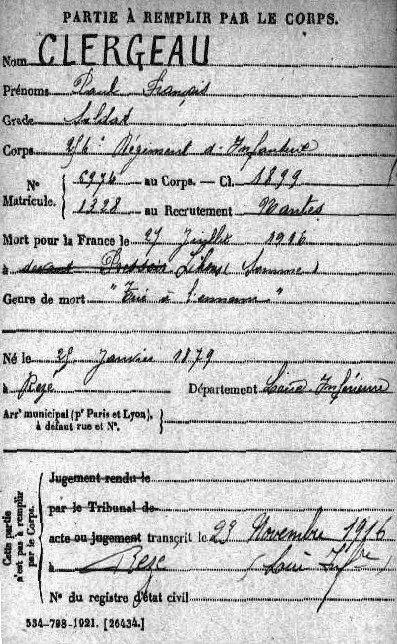 PARTIE À REMPLIR PAR LE CORPS.
Nom CLERGEAU
Prénoms Paul Français
Grade Soldat
Corps 256e Régiment d'Infanterie
N° Matricule. 6976 au Corps. — Cl. 1899
1328 au Recrutement Nantes
Mort pour la France le 27 Juillet 1916
à devant (Somme)
Genre de mort "Tué à l'ennemi"
Né le 25 Janvier 1879
à Rezé Département Loire Inférieure
Arrt municipal (pr Paris et Lyon),
à défaut rue et N°.
Cette partie n'est pas à remplir par le Corps.
Jugement rendu le
par le Tribunal de
acte ou jugement transcrit le 23 Novembre 1916
à Rezé (Loire Infre)
N° du registre d'état civil
534-798-1921. [26434.]